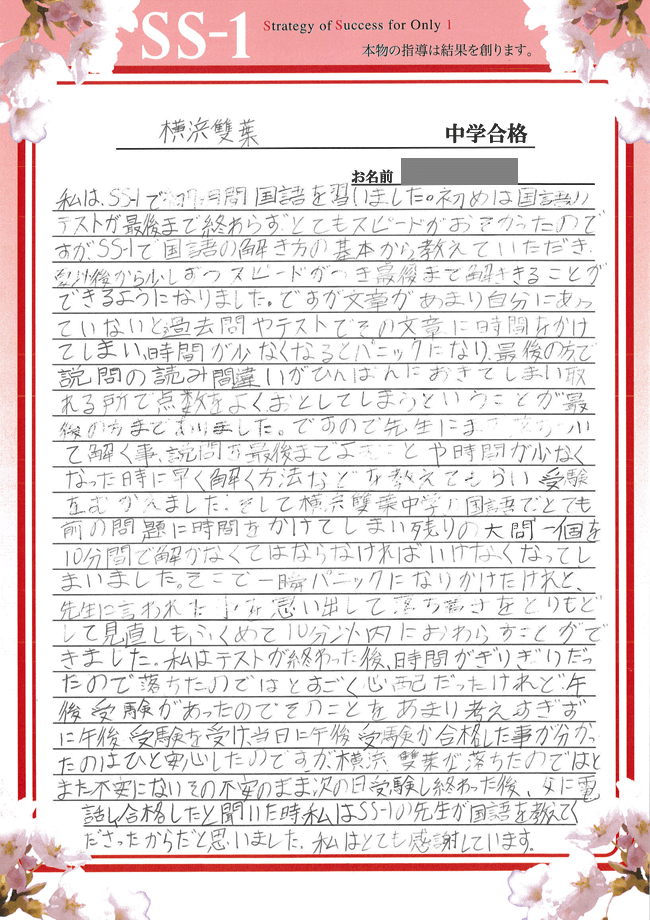 SS-1
Strategy of Success for Only 1
本物の指導は結果を創ります。
横浜雙葉 中学合格
お名前
私は、SS-1で 間国語を習いました。初めは国語の
テストが最後まで終わらず、とてもスピードがおそかったので
すが、SS-1で国語の解き方の基本から教えていただき、
後から少しずつスピードがつき最後まで解ききることが
できるようになりました。ですが文章があまり自分にあっ
ていないと過去問やテストでその文章に時間をかけ
てしまい、時間が少なくなるとパニックになり、最後の方で
説問の読み間違いがひんぱんにおきてしまい取
れる所で点数をよくおとしてしまうということが最
後の方までありました。ですので先生にま
て解く事、説問を最後までよむことや時間が少なく
なった時に早く解く方法などを教えてもらい受験
をむかえました。そして横浜雙葉中学の国語でとても
前の問題に時間をかけてしまい残りの大問一個を
10分間で解かなくてはならなければいけなくなってし
まいました。そこで一瞬パニックになりかけたけれど、
先生に言われた を思い出して落ち着きをとりもど
して見直しもふくめて10分以内におわらすことがで
きました。私はテストが終わった後、時間がぎりぎりだっ
たので落ちたのではとすごく心配だったけれど午
後受験があったのでそのことをあまり考えすぎず
に午後受験を受け、当日に午後受験が合格した事が分かっ
たのはひと安心したのですが、横浜雙葉が落ちたのではと
また不安になりその不安のまま次の日受験し終わった後、父に電
話し合格したと聞いた時私はSS-1の先生が国語を教えてく
ださったからだと思いました。私はとても感謝しています。